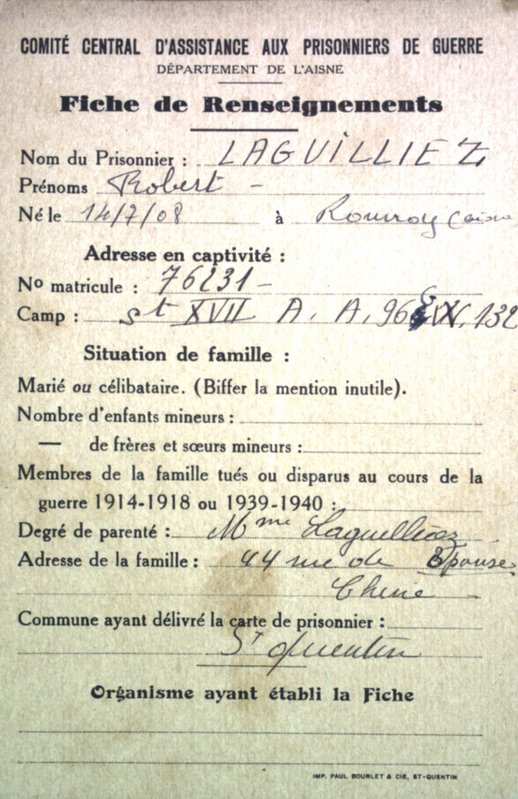 COMITÉ CENTRAL D'ASSISTANCE AUX PRISONNIERS DE GUERRE
DÉPARTEMENT DE L'AISNE
Fiche de Renseignements
Nom du Prisonnier : LAGUILLIEZ
Prénoms Robert -
Né le 14/7/08 à Rouvroy (aisne
Adresse en captivité :
No matricule : 76231 -
Camp : St XVII A. A. 96 132
Situation de famille :
Marié ou célibataire. (Biffer la mention inutile).
Nombre d'enfants mineurs :
— de frères et sœurs mineurs :
Membres de la famille tués ou disparus au cours de la
guerre 1914-1918 ou 1939-1940 :
Degré de parenté : Mme Laguilliez
Adresse de la famille : 44 rue de Epouse
Chine
Commune ayant délivré la carte de prisonnier :
St Quentin
Organisme ayant établi la Fiche
IMP. PAUL BOURLET & CIE, ST-QUENTIN